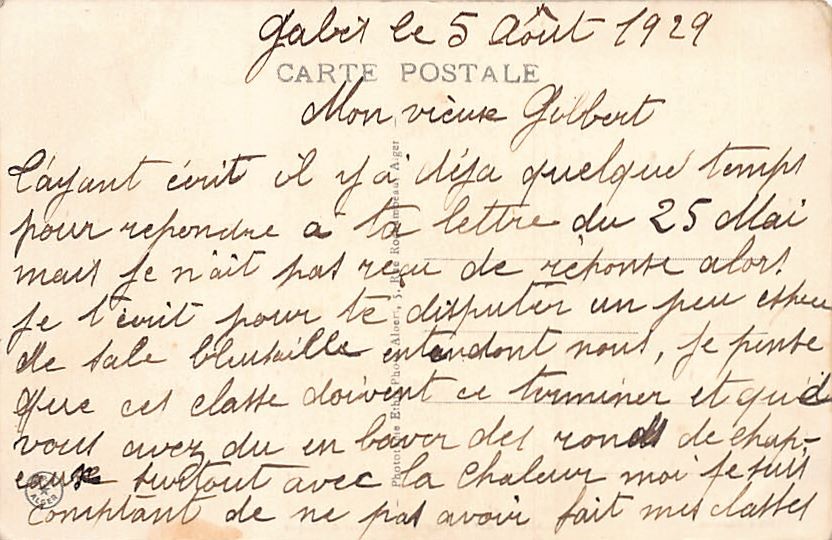 Gabès le 5 Août 1929
CARTE POSTALE
Mon vieux Gilbert
t'ayant écrit il y a déja quelque temps
pour repondre a ta lettre du 25 Mai
mais je n'ait pas reçu de réponse alors
je t'écrit pour te disputer un peu espece
de sale bleusaille entendont nous, je pense
que ces classe doivent ce terminer et qu'il
vous avez du en baver des ronds de chap-
eaux surtout avec la chaleur moi je suis
comptant de ne pas avoir fait mes classes
Phototypie Etab. Photo Alger, 5, Rue Rochambeau Alger
ALGER